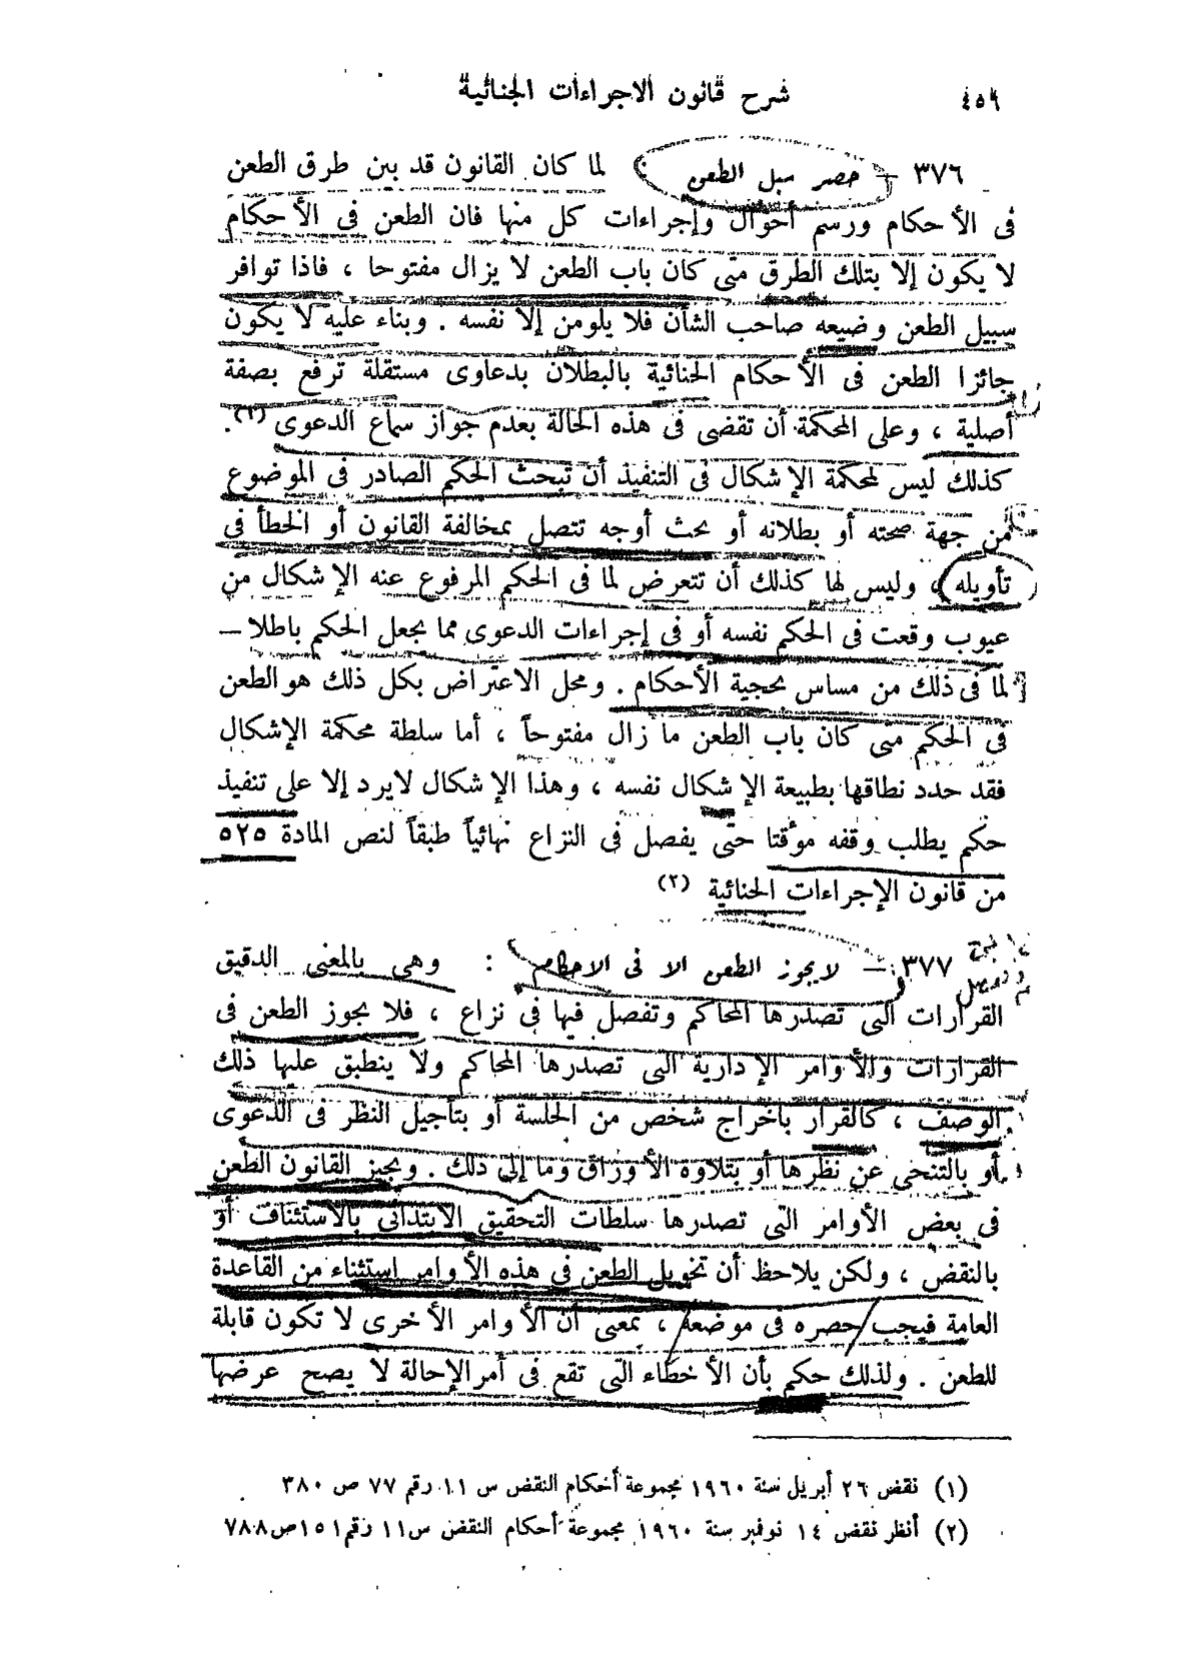 شرح قانون الاجراءات الجنائية
٣٧٦ — حصر سبل الطعن : لما كان القانون قد بين طرق الطعن
فى الأحكام ورسم أحوال وإجراءات كل منها فان الطعن فى الأحكام
لا يكون إلا بتلك الطرق متى كان باب الطعن لا يزال مفتوحا ، فاذا توافر
سبيل الطعن وضيعه صاحب الشأن فلا يلومن إلا نفسه . وبناء عليه لا يكون
جائزا الطعن فى الأحكام الجنائية بالبطلان بدعاوى مستقلة ترفع بصفة
أصلية ، وعلى المحكمة أن تقضى فى هذه الحالة بعدم جواز سماع الدعوى (١) .
كذلك ليس لمحكمة الإشكال فى التنفيذ أن تبحث الحكم الصادر فى الموضوع
من جهة صحته أو بطلانه أو بحث أوجه تتصل بمخالفة القانون أو الخطأ فى
تأويله ، وليس لها كذلك أن تتعرض لما فى الحكم المرفوع عنه الإشكال من
عيوب وقعت فى الحكم نفسه أو فى إجراءات الدعوى مما يجعل الحكم باطلا —
لما فى ذلك من مساس بحجية الأحكام . ومحل الاعتراض بكل ذلك هو الطعن
فى الحكم متى كان باب الطعن ما زال مفتوحاً ، أما سلطة محكمة الإشكال
فقد حدد نطاقها بطبيعة الإشكال نفسه ، وهذا الإشكال لايرد إلا على تنفيذ
حكم يطلب وقفه مؤقتا حتى يفصل فى النزاع نهائياً طبقاً لنص المادة ٥٢٥
من قانون الإجراءات الجنائية (٢)
٣٧٧ — لا يجوز الطعن الا فى الاحكام : وهى بالمعنى الدقيق
القرارات التى تصدرها المحاكم وتفصل فيها فى نزاع ، فلا يجوز الطعن فى
القرارات والأوامر الإدارية التى تصدرها المحاكم ولا ينطبق عليها ذلك
الوصف ، كالقرار باخراج شخص من الجلسة أو بتأجيل النظر فى الدعوى
أو بالتنحى عن نظرها أو بتلاوة الأوراق وما إلى ذلك . ويجيز القانون الطعن
فى بعض الأوامر التى تصدرها سلطات التحقيق الابتدائى بالاستئناف أو
بالنقض ، ولكن يلاحظ أن تخويل الطعن فى هذه الأوامر استثناء من القاعدة
العامة فيجب حصره فى موضعه ، بمعنى أن الأوامر الأخرى لا تكون قابلة
للطعن . ولذلك حكم بأن الأخطاء التى تقع فى أمر الإحالة لا يصح عرضها
(١) نقض ٢٦ أبريل سنة ١٩٦٠ مجموعة أحكام النقض س ١١ رقم ٧٧ ص ٣٨٠
(٢) أنظر نقض ١٤ نوفمبر سنة ١٩٦٠ مجموعة أحكام النقض س ١١ رقم ١٥١ ص ٧٨٨